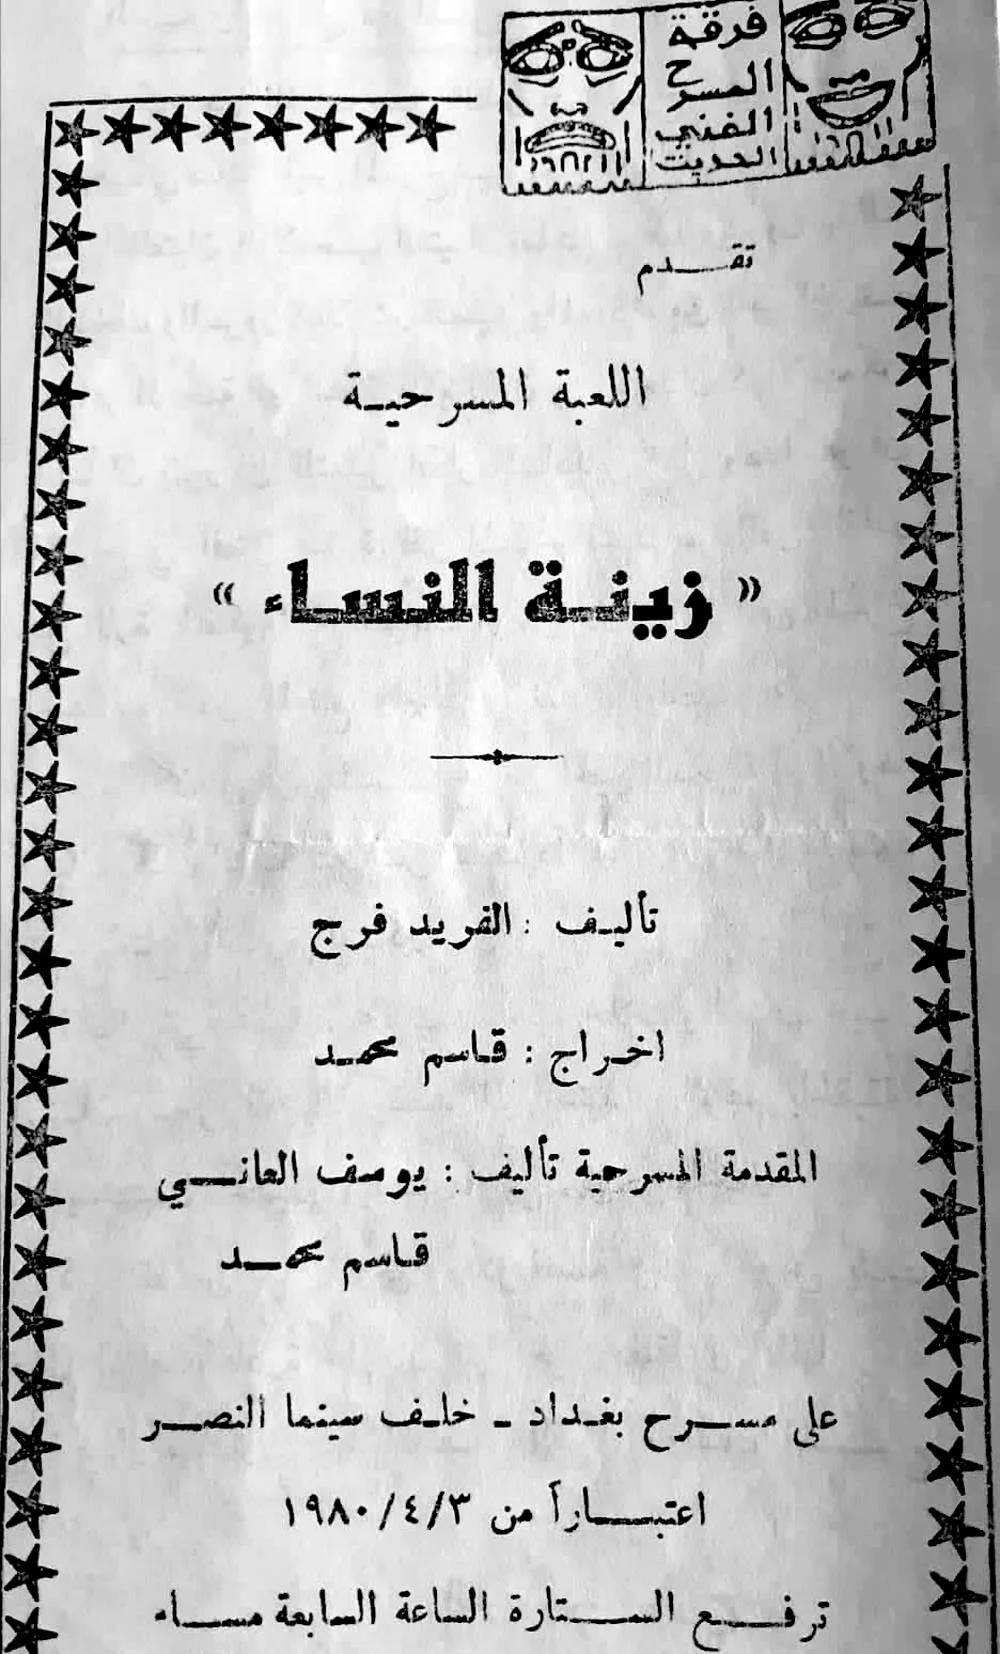 فرقة
المسرح
الفني
الحديث
تقـــدم
اللعبة المسرحيـة
« زينـة النسـاء »
تأليـف : الفريد فرج
اخـراج : قـاسم محمـد
المقدمة المسرحية تأليف : يوسف العانـــي
قـاسم محمـــد
على مســرح بغـداد ـ خلـف سينما النصـــر
اعتبـــاراً من ١٩٨٠/٤/٣
ترفـــع الســـتارة الساعة السابعة مســاء